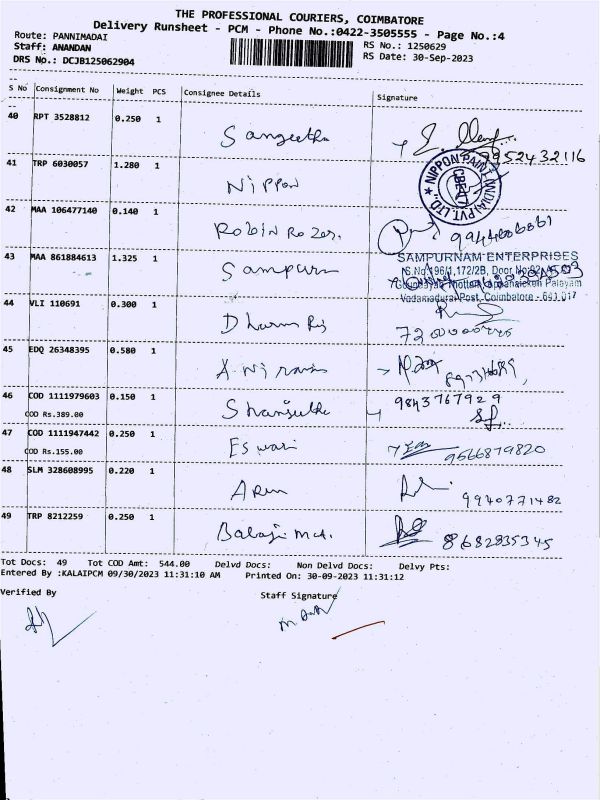 THE PROFESSIONAL COURIERS, COIMBATORE
Delivery Runsheet - PCM - Phone No.:0422-3505555 - Page No.:4
Route: PANNIMADAI
RS No.: 1250629
Staff: ANANDAN
RS Date: 30-Sep-2023
DRS No.: DCJB125062904
S No Consignment No Weight PCS Consignee Details Signature
40 RPT 3528812 0.250 1 Sangeetha
41 TRP 6030057 1.280 1 Nippon
NIPPON PAINT (INDIA) PVT. LTD.
42 MAA 106477140 0.140 1 Robin Rozes.
43 MAA 861884613 1.325 1 Sampurn
SAMPURNAM ENTERPRISES
Vadamadurai Post, Coimbatore - 641 017
44 VLI 110691 0.300 1
45 EDQ 26348395 0.580 1
46 COD 1111979603 0.150 1 9843767929
COD Rs.389.00
47 COD 1111947442 0.250 1 Eswari 9566879820
COD Rs.155.00
48 SLM 328608995 0.220 1 Arun 9940771482
49 TRP 8212259 0.250 1 Balaji 8682835345
Tot Docs: 49 Tot COD Amt: 544.00 Delvd Docs: Non Delvd Docs: Delvy Pts:
Entered By :KALAIPCM 09/30/2023 11:31:10 AM Printed On: 30-09-2023 11:31:12
Verified By Staff Signature